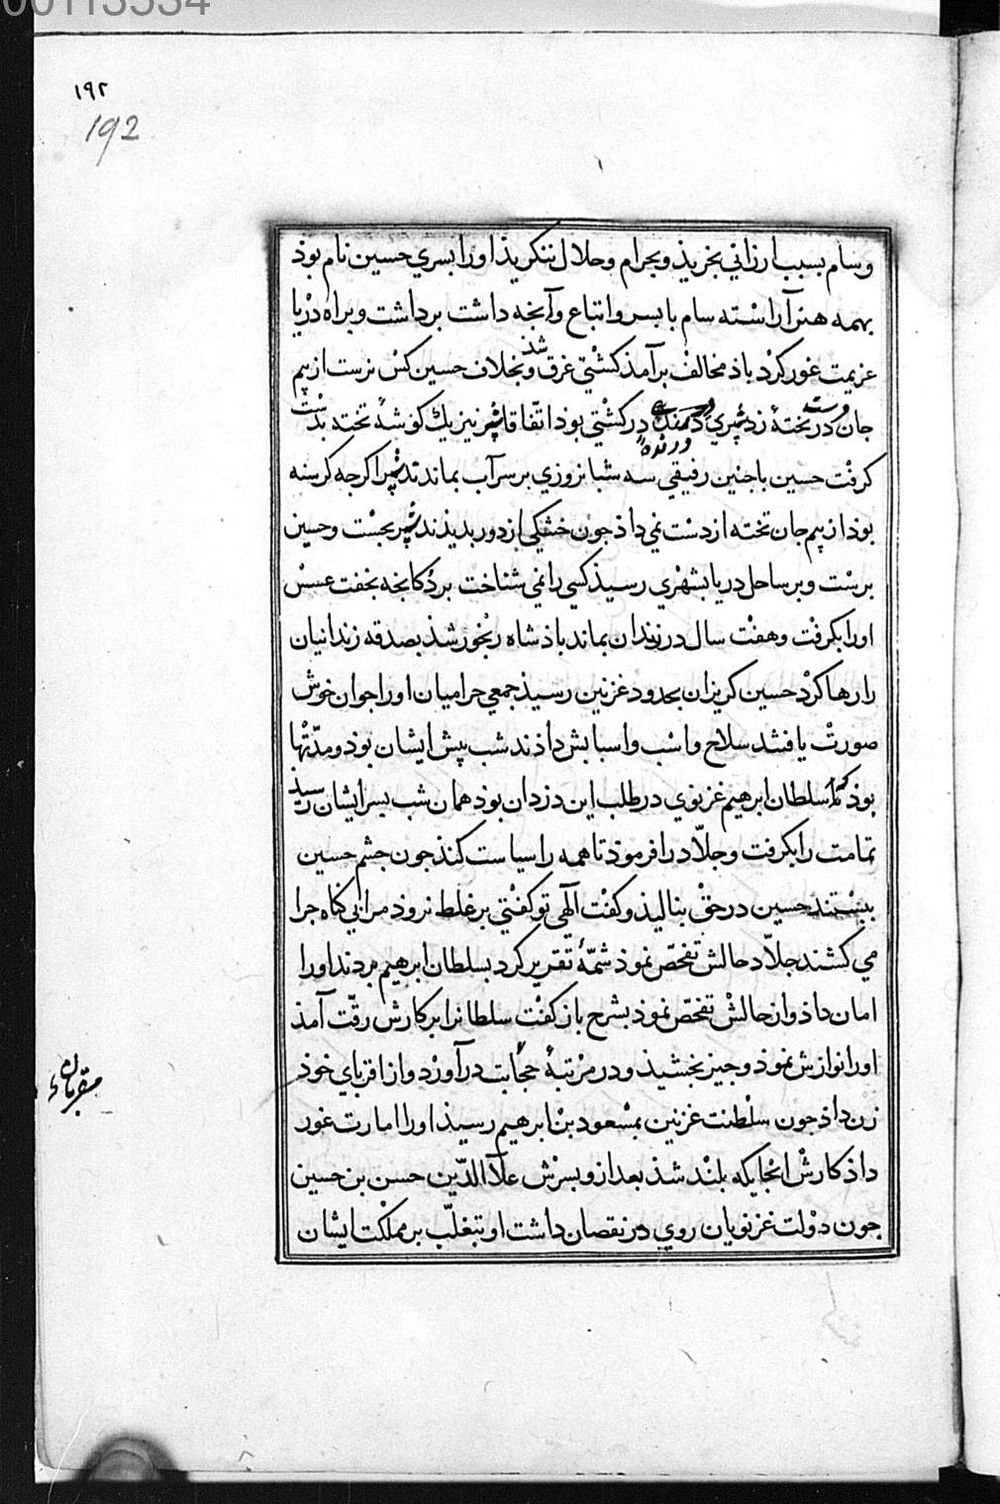 00113534
۱۹۲
192
وسام بسبب ارزانی بخریذ و بحرام وحلال ننکریذ اورا بسری حسین نام بوذ
بهمه هنر آراسته سام با بسر واتباع وآنجه داشت برداشت وبراه دریا
عزیمت غور کرد باذ مخالف برآمذ کشتی غرق شذ وبخلاف حسین کس نرست از بیم
جان دست در تختهٔ زد شیری درنده در کشتی بوذ اتفاقا شیر نیز یك کوشهٔ تخته بدست
کرفت حسین باجنین رفیقی سه شبانروزی بر سر آب بماندند شیر اکرجه کرسنه
بوذ از بیم جان تخته از دست نمی داذ جون خشکی از دور بدیذند شیر بجست وحسین
برست وبر ساحل دریا بشهری رسیذ کسی را نمی شناخت بر دکانجه بخفت عسس
اورا بکرفت وهفت سال در زندان بماند باذشاه رنجور شذ بصدقه زندانیان
را رها کرد حسین کریزان بحدود غزنین رسیذ جمعی حرامیان اورا جوان خوش
صورت یافتند سلاح واسب واسبابش داذند شب پیش ایشان بوذ ومدتها
بوذ که سلطان ابرهیم غزنوی در طلب این دزدان بوذ همان شب بسر ایشان رسیذ
تمامت را بکرفت وجلاد را فرموذ تا همه را سیاست کنذ جون جشم حسین
ببستند حسین در حق بنالیذ وکفت آلهی تو کفتی بر غلط نروذ مرا بی کناه جرا
می کشند جلاد حالش تفحص نموذ شمهٔ تقریر کرد بسلطان ابرهیم بردند اورا
امان داذ واز حالش تفحص نموذ بشرح باز کفت سلطانرا بر کارش رقت آمذ
اورا نوازش نموذ وجیز بخشیذ ودر مرتبهٔ حجابت درآورد واز اقربای خوذ
زن داذ جون سلطنت غزنین بمسعود بن ابرهیم رسیذ اورا امارت غور
داذ کارش انجایکه بلند شذ بعد ازو بسرش علاالدین حسن بن حسین
جون دولت غزنویان روی در نقصان داشت او بتغلب بر مملکت ایشان